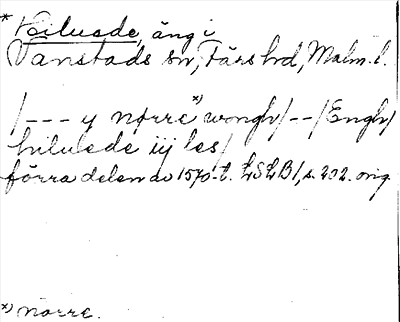 * Hiluede, äng i
Vanstads sn, Färs hd, Malm. l.
/--- y nørre *) wongh/--/Engh/
hiluede iij les/
förra delen av 1570-t. LSLB 1, s. 202. orig.
*) norre.